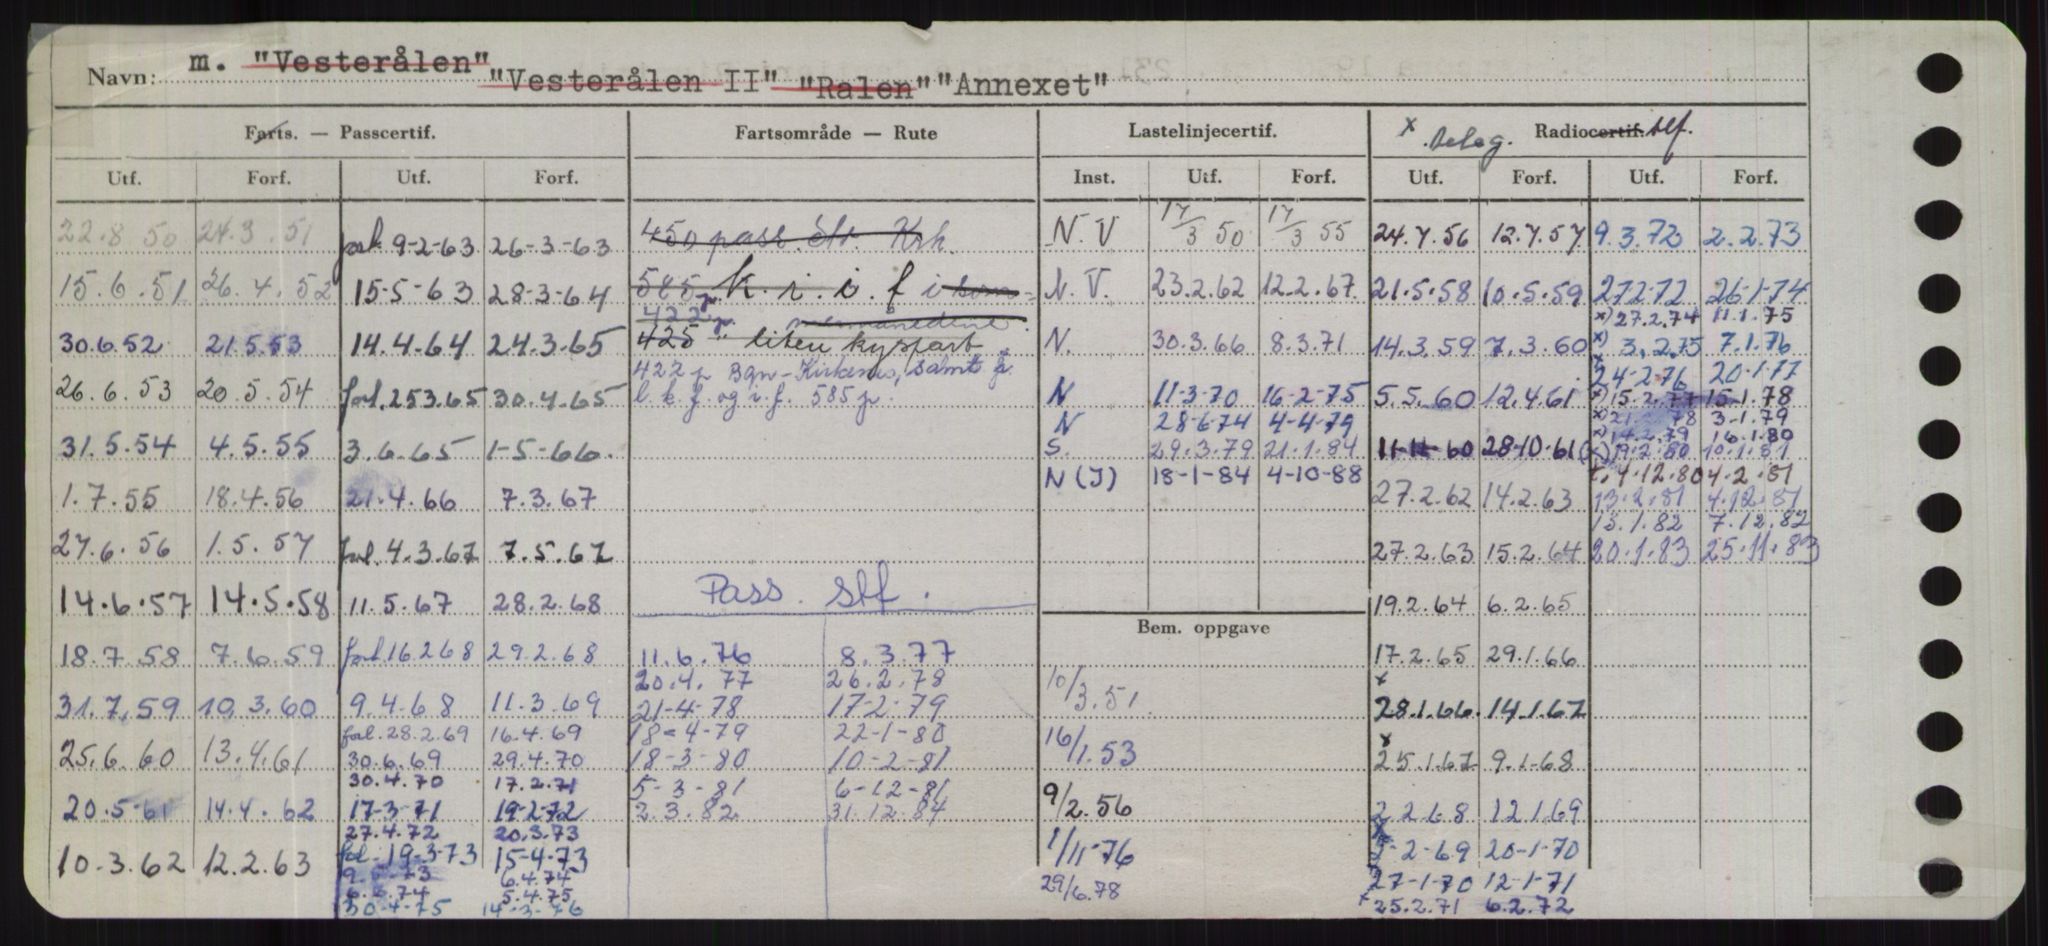 Navn: m. "Vesterålen" "Vesterålen II" "Ralen" "Annexet"
Farts. — Passcertif.
Utf. Forf. Utf. Forf.
22.8 50 24.3.51
15.6.51 26.4.52
30.6.52 21.5.53
26.6.53 20.5.54
31.5.54 4.5.55
1.7.55 18.4.56
27.6.56 1.5.57
14.6.57 14.5.58
18.7.58 7.6.59
31.7.59 10.3.60
25.6.60 13.4.61
20.5-61 14.4.62
10.3.62 12.2.63
forl. 9-2-63 26-3-63
15-5-63 28-3-64
14.4-64 24.3.65
forl. 25.3.65 30.4.65
3.6.65 1-5-66.
21.4.66 7.3.67
fol. 4.3.67 7.5.67
11.5.67 28.2.68
forl. 16.2.68 29.2.68
9.4.68 11.3.69
fol. 28.2.69 16.4.69
30.6.69 29.4.70
30.4.70 17.2.71
17-3-71 19-2-72
27.4.72 20.3.73
fol. 19-3-73 15-4-73
73 6.4.74
74 5.4.75
30-4-75 14-3-76
Fartsområde — Rute
450 pass Str. Krh.
585 p. k. i. i. f i som-
422 p. mermånedene.
425 " liten kystfart
422 p Bgn-Kirkenes, samt
l. k. f. og i. f. 585 p.
Pass. slf.
11.6.76 8.3.77
20.4.77 26.2.78
21-4-78 17-2-79
18-4-79 22-1-80
18-3-80 10-2-81
5-3-81 6-12-81
2.3.82 31.12.84
Lastelinjecertif.
Inst. Utf. Forf.
N.V 17/3 50 17/3 55
N.V. 23.2.62 12.2.67
N. 30.3.66 8.3.71
N 11-3-70 16-2-75
N 28-6-74 4-4-79
S. 29.3.79 21.1.84
N(J) 18-1-84 4-10-88
Bem. oppgave
10/3.51
16/1.53
9/2.56
1/11-76
29/6.78
x Beleg. Radiocertif. slf.
Utf. Forf. Utf. Forf.
24.7.56 12.7.57
21.5.58 10.5.59
14.3.59 7.3.60
5.5.60 12.4.61
11-11-60 28-10-61
27.2.62 14.2.63
27.2.63 15.2.64
19.2.64 6.2.65
17.2.65 29.1.66
x 28.1.66. 14.1.67
x 25.1.67 9.1-68
2.2.68 12.1.69
x 2-69 20-1-70
27-1-70 12-1-71
x 25.2.71 6.2.72
9.3.72 2.2.73
27.2.72 26-1-74
x) 27.2.74 11.1.75
x) 3.2.75 7.1.76
x 24-2-76 20-1-77
x) 15.2.77 15-1.78
x) 21 78 3-1.79
x) 14.2.79 16.1.80
x) 19.2.80 10.1.81
4.12.80 4.2.81
13.2.81 4.12.81
13.1.82 7.12.82
20.1.83 25.11.83